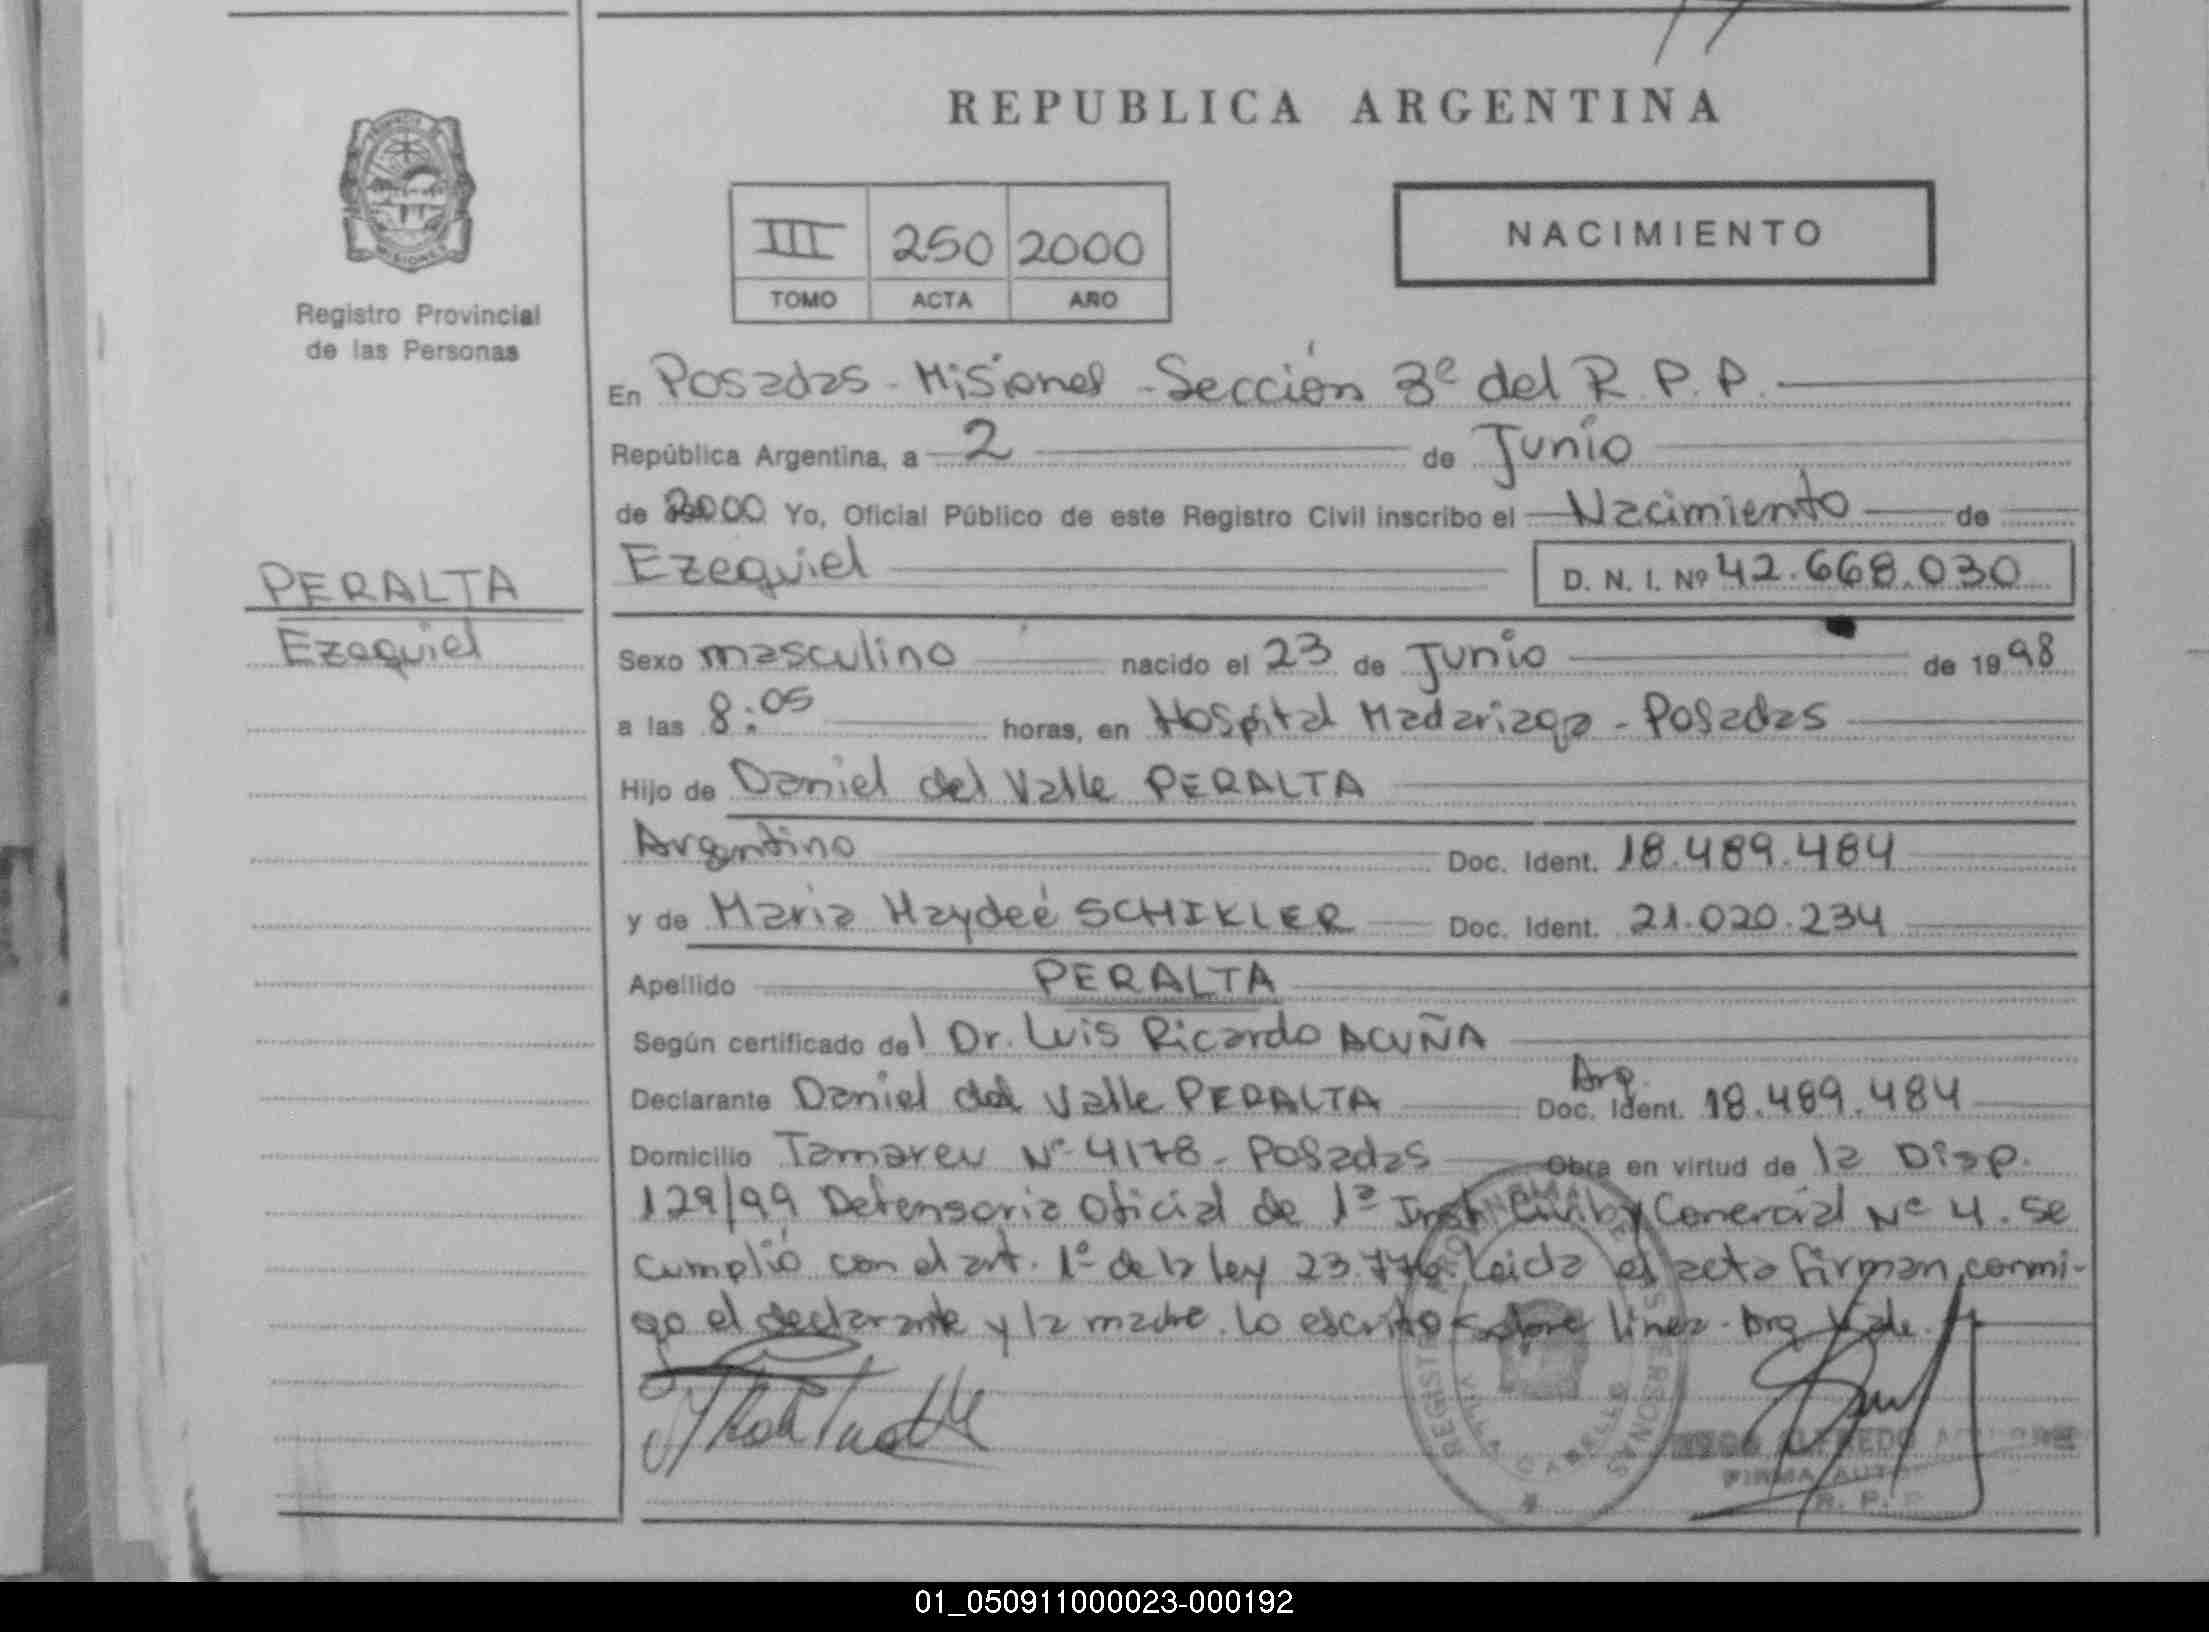 REPUBLICA ARGENTINA
III 250 2000
TOMO ACTA AÑO
NACIMIENTO
Registro Provincial
de las Personas
PERALTA
Ezequiel
En Posadas - Misiones - Sección 3ª del R.P.P.
República Argentina, a 2 de Junio
de 2000 Yo, Oficial Público de este Registro Civil inscribo el Nacimiento de
Ezequiel D. N. I. Nº 42.668.030
Sexo masculino nacido el 23 de Junio de 1998
a las 8:05 horas, en Hospital Madariaga - Posadas
Hijo de Daniel del Valle PERALTA
Argentino Doc. Ident. 18.489.484
y de Maria Haydeé SCHIKLER Doc. Ident. 21.020.234
Apellido PERALTA
Según certificado del Dr. Luis Ricardo ACUÑA
Arg.
Declarante Daniel del Valle PERALTA Doc. Ident. 18.489.484
Domicilio Tamareu Nº 4178 - Posadas Obra en virtud de la Disp.
129/99 Defensoria Oficial de 1ª Inst Civil y Comercial Nº 4. Se
cumplió con el art. 1º de la ley 23.776. Leida el acta firman conmi-
go el declarante y la madre. Lo escrito sobre linea - Arg Vale.
REGISTRO PROVINCIAL DE LAS PERSONAS
VILLA CABELLO
ALFREDO
FIRMA AUT
R. P. P
01_050911000023-000192